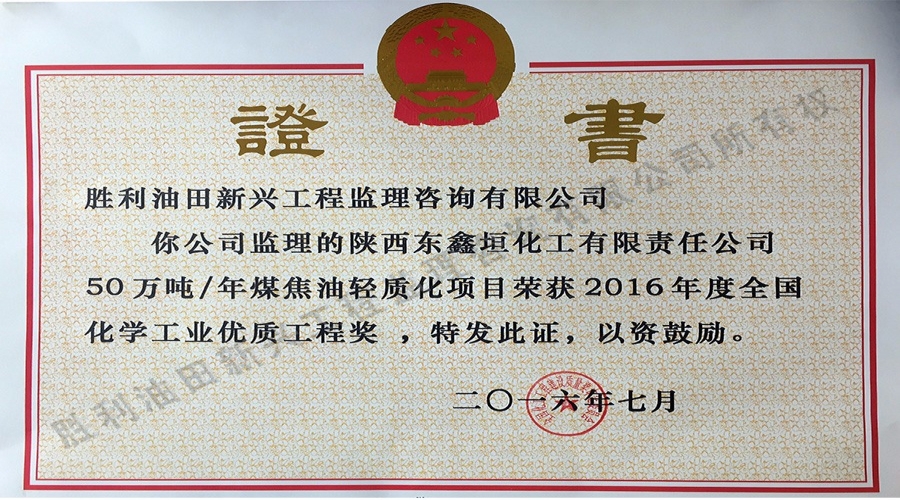 證 書
胜利油田新兴工程监理咨询有限公司
你公司监理的陕西东鑫垣化工有限责任公司
50万吨/年煤焦油轻质化项目荣获2016年度全国
化学工业优质工程奖 ，特发此证，以资鼓励。
二〇一六年七月
胜利油田新兴工程监理咨询有限公司所有仅